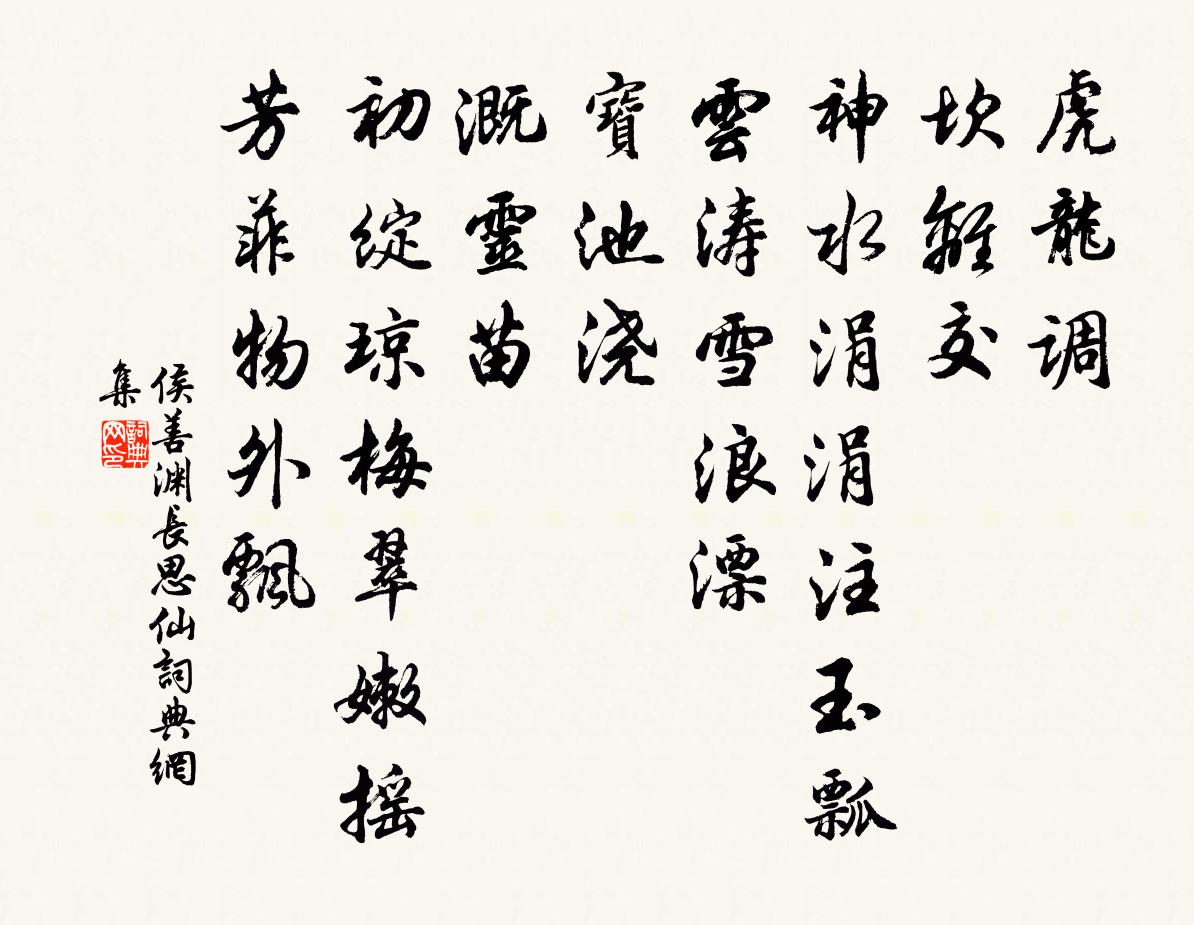 虎龍调
坎離交
神水涓涓注玉瓢
雲涛雪浪漂
寶池浇
溉靈苗
初綻琼梅翠嫩摇
芳菲物外飄
侯善渊長思仙詞典網
集
詞典网印